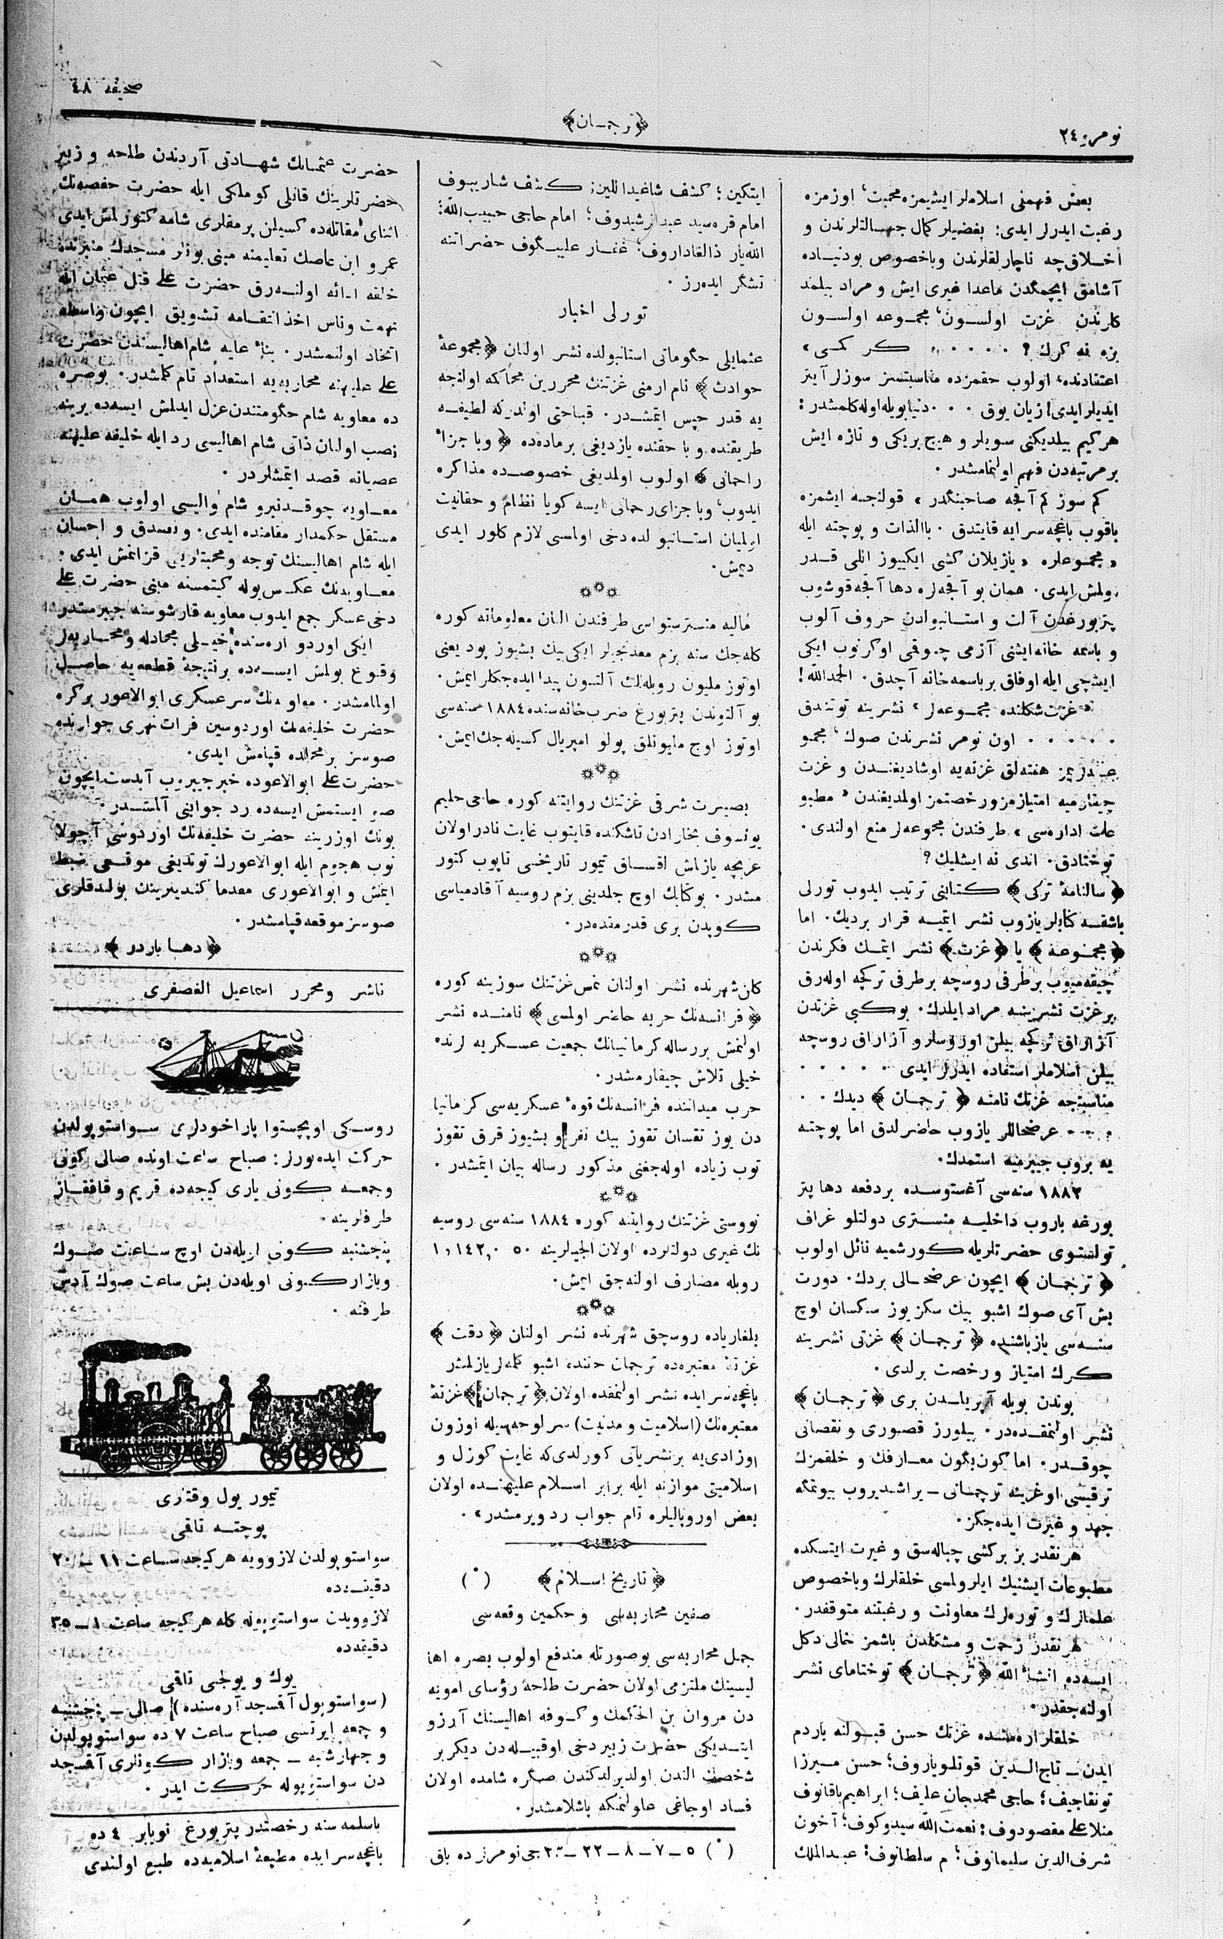 نومرو ٢٤
﴿ترجمان﴾
صحیفه ٤٨
بعض فهمنی اسلاملر ایشیمزه محبت، اوزمزه
رغبت ایدرلر ایدی: بعضیلر کمال جهالتلرندن و
اخلاقچه ناچارلقلرندن وباخصوص بودنیاده
آشامق ایچمکدن ماعدا غیری ایش و مراد بیلمد
کلرندن غزت اولسون، مجموعه اولسون
بزه نه کرك؟ . . . . . کر کمی،
اعتقادنده، اولوب حقمزده مناسبتسز سوزلر آیتر
ایدیلر ایدی! زیان یوق . . . دنیا بویله اوله کلمشدر:
هرکیم بیلدیکنی سویلر و هیچ بریکی و تازه ایش
بر مرتبه‌دن فهم اولنمامشدر .
کم سوز کم آقچه صاحبنکدر، قولنجه ایشمزه
باقوب باغچه‌سرایه قایتدق . باالذات و پوچته ایله
«مجموعلره» یازیلان کشی ایکییوز اللی قدر
بولمش ایدی. همان بو آقچه‌لره دها آقچه قوشوب
پتربورغدن آلت و استانبولدن حروف آلوب
و باصمه خانه ایشنی آزمی چوقمی اوگرنوب ایکی
ایشچی ایله اوفاق بر باسمه خانه آچدق. الحمدالله!
«غزت شکلنده مجموعه‌لر» نشرینه توتندق
. . . . . اون نومر نشرندن صوك، مجمو
عه‌لریمز هفته‌لق غزته‌یه اوشادیغندن و غزت
چیقارمیه امتیازمز و رخصتمز اولمدیغندن «مطبو
عات اداره‌سی» طرفندن مجموعه‌لر منع اولندی.
توختادق. اندی نه ایشلیك؟
﴿سالنامهٔ ترکی﴾ کتابنی ترتیب ایدوب تورلی
باشقه کتابلر یازوب نشر ایتمیه قرار بردیك. اما
﴿مجموعه﴾ یا ﴿غزت﴾ نشر ایتمك فکرندن
چیقه‌میوب بر طرفی روسچه بر طرفی ترکچه اوله‌رق
بر غزت نشرینه مراد ایلدك. بو کبی غزتدن
آزاراق ترکچه بیلن اوروسلر و آزاراق روسچه
بیلن اسلاملر استفاده ایدرلر ایدی . . . . .
مناسبتجه غزتك نامنه ﴿ترجمان﴾ دیدك . .
. . . عرضحاللر یازوب حاضرلدق اما پوچته
یه بروب جیبرمیه استمدك.
١٨٨٢ سنه‌سی آغستوسده بر دفعه دها پتر
بورغه باروب داخلیه منستری دولتلو غراف
تولستوی حضرتلریله کورشمیه نائل اولوب
﴿ترجمان﴾ ایچون عرضحالی بردك. دورت
بش آی صوك اشبو بیك سکز یوز سکسان اوچ
سنه‌سی یاز باشنده ﴿ترجمان﴾ غزتی نشرینه
کرك امتیاز و رخصت برلدی.
بوندن بویله آیریلمدن بری ﴿ترجمان﴾
نشر اولنمقده‌در. بیلورز قصوری و نقصانی
چوقدر. اما کون بگون معارفك و خلقمزك
ترقیسی اوغرینه ترجمانی یراشدیروب بیوتمکه
جهد و غیرت ایده‌جکز.
هر نقدر بز بر کشی چباله‌سق و غیرت ایتسکده
مطبوعات ایشنیك ایلرولمسی خلقلرك و باخصوص
علمانك و توره‌لرك معاونت و رغبتنه متوقفدر.
هر نقدر زحمت و مشکلدن باشمز خالی دکل
ایسه‌ده انشاءالله ﴿ترجمان﴾ توختامای نشر
اولنه‌جقدر.
خلقلر اره‌سنده غزتك حسن قبولنه یاردم
ایدن ـ تاج‌الدین قوتلویاروف؛ حسن میرزا
تونقاچیف؛ حاجی محمدجان علیف؛ ابراهیم باقانوف
منلا علی مقصودوف؛ نعمت الله سیدوکوف؛ آخون
شرف‌الدین سلیمانوف؛ م سلطانوف؛ عبدالملك
ایتکین؛ کشف شاغیداللین؛ کشف شاریپوف
امام قره سید عبدالرشیدوف؛ امام حاجی حبیب الله؛
الله‌یار ذالقاداروف؛ غفار علیبیگوف حضراتنه
تشکر ایده‌رز.
تورلی اخبار
عثمانلی حکوماتی استانبولده نشر اولنان ﴿مجموعهٔ
حوادث﴾ نام ارمنی غزتنك محررین محاکمه اولنجه
یه قدر حبس ایتمشدر. قباحتی اولدرکه لطیفه
طریقنده وبا حقنده یازدیغی برماده‌ده ﴿وبا جزاء
راحمانی﴾ اولوب اولمدیغی خصوصده مذاکره
ایدوب، وبا جزای رحمانی ایسه کویا نظام و حقانیت
اولمیان استانبولده دخی اولمسی لازم کلور ایدی
دیمش.
مالیه منسترستواسی طرفندن النان معلوماته کوره
کله‌جك سنه بزم معدنجیلر ایکی بیك بشیوز پود یعنی
اوتوز ملیون روبله‌لك آلتون پیدا ایده‌جکلر ایمش.
بو آلتوندن پتربورغ ضربخانه‌سنده ١٨٨٤ سنه‌سی
اوتوز اوچ ملیونلق پولو امپریال کسیله‌جك ایمش.
بصیرت شرقی غزتنك روایتنه کوره حاجی حلیم
یونسوف بخارادن تاشکنده قایتوب غایت نادر اولان
عربچه یازلمش اقساق تیمور تاریخی تاپوب کتور
مشدر. بو کتابك اوچ جلدینی بزم روسیه آقادمیاسی
کوبدن بری قدرمقده‌در.
کان شهرنده نشر اولنان نمس غزتنك سوزینه کوره
﴿فرانسه‌نك حربه حاضر اولمسی﴾ نامنده نشر
اولنمش بر رساله کرمانیانك جمعیت عسکریه لرنده
خیلی تلاش چیقارمشدر.
حرب میداننده فرانسه‌نك قوهٔ عسکریه‌سی کرمانیا
دن یوز تقسان تقوز بیك نفر و بشیوز قرق تقوز
توب زیاده اوله‌جغی مذکور رساله بیان ایتمشدر.
نووستی غزتنك روایتنه کوره ١٨٨٤ سنه‌سی روسیه
نك غیری دولتلرده اولان ایلچیلرینه ١،١٤٢،٠٥٠
روبله مضارف اولنه‌جق ایمش.
بلغاریاده روسچق شهرنده نشر اولنان ﴿دقت﴾
غزتهٔ معتبره‌ده ترجمان حقنده اشبو کلمه‌لر یازلمشدر
باغچه‌سرایده نشر اولنمقده اولان ﴿ترجمان﴾ غزتهٔ
معتبره‌نك (اسلامیت و مدنیت) سر لوحه‌سیله اوزون
اوزادی‌یه بر نشریاتی کورلدی که غایت کوزل و
اسلامیتی موازنه ایله برابر اسلام علیهنده اولان
بعض اوروپالیلره تام جواب رد ویرمشدر».
﴿تاریخ اسلام﴾ (*)
صفین محاربه‌سی و حکمین وقعه‌سی
جمل محاربه‌سی بو صورتله مندفع اولوب بصره اها
لیسینك ملتزمی اولان حضرت طلحه رؤسای امویه
دن مروان بن الحکمك و کوفه اهالیسنك آرزو
ایتدیکی حضرت زبیر دخی او قبیله‌دن دیکر بر
شخصك الندن اولدیرلدکدن صگره شامده اولان
فساد اوجاغی علولنمکه باشلامشدر.
(*) ٥–٧–٨–٢٢–٢٣جی نومرلرده باق
حضرت عثمانك شهادتی آردندن طلحه و زبیر
حضرتلرینك قانلی کوملکی ایله حضرت حفصه‌نك
اثنای مقاتله‌ده کسیلن پرمقلری شامه کتورلمش ایدی
عمرو ابن عاصك تعلیمنه مبنی بونلر مسجدك منبرنده
خلقه ارائه اولنه‌رق حضرت علی قتل عثمان ایله
تهمت وناس اخذ انتقامه تشویق ایچون واسطه
اتخاذ اولنمشدر. بناءً علیه شام اهالیسندن حضرت
علی علیهنه محاربه‌یه استعداد تام کلمشدر. بوصره
ده معاویه شام حکومتندن عزل ایدلمش ایسه‌ده یرینه
نصب اولنان ذاتی شام اهالیسی رد ایله خلیفه علیهنه
عصیانه قصد ایتمشلردر.
معاویه چوقدنبرو شام والیسی اولوب همان
مستقل حکمدار مقامنده ایدی. و تصدق و احسان
ایله شام اهالیسنك توجه و محبتلرین قزانمش ایدی.
معاویه‌نك عکس یوله کیتمسنه مبنی حضرت علی
دخی عسکر جمع ایدوب معاویه قارشوسنه جیبرمشدر
ایکی اوردو اره‌سنده خیلی مجادله و محاربه‌لر
وقوع بولمش ایسه‌ده بر نتیجهٔ قطعه‌یه حاصل
اولمامشدر. معاویه‌نك سر عسکری ابوالاعور بر کره
حضرت خلیفه‌نك اوردوسین فرات نهری جوارنده
صوسز بر محلده قپامش ایدی.
حضرت علی ابوالاعوده خبر جیبروب آبدست ایچون
صو ایستمش ایسه‌ده رد جوابنی آلمشدر.
بونك اوزرینه حضرت خلیفه‌نك اوردوسی آچولا
نوب هجوم ایله ابوالاعورك توتدیغی موقعی ضبط
ایتمش و ابوالاعوری مقدما کندیلرینك بولندقلری
صوسز موقعه قپامشدر.
﴿دها باردر﴾
ناشر ومحرر اسماعیل الغصفری
روسکی اوبچستوا پاراخودلری سواستوپولدن
حرکت ایده‌یورلر: صباح ساعت اونده صالی کونی
و جمعه کونی یاری کیجه‌ده قریم و قافقاز
طرفلرینه.
پنجشنبه کونی اویله‌دن اوچ ساعت صوك
و بازار کونی اویله‌دن بش ساعت صوك آدس
طرفنه.
تیمور یول وقتری
پوچته تاقی
سواستوپولدن لازوویه هر کیجه ساعت ١١ـ٢٠
دقیقه‌ده
لازوویدن سواستوپوله کله هر کیجه ساعت ١ـ٣٥
دقیقه‌ده
یوك و یولجی تاقی
(سواستوپول آقمسجد آره‌سنده) صالی ـ پنجشنبه
و جمعه ایرتسی صباح ساعت ٧ ده سواستوپولدن
و چهارشنبه ـ جمعه و بازار کونلری آقمسجد
دن سواستوپوله حرکت ایدر.
باسلمه سنه رخصتدر پتربورغ نویابر ٤ ده
باغچه‌سرایده مطبعهٔ اسلامیه‌ده طبع اولندی